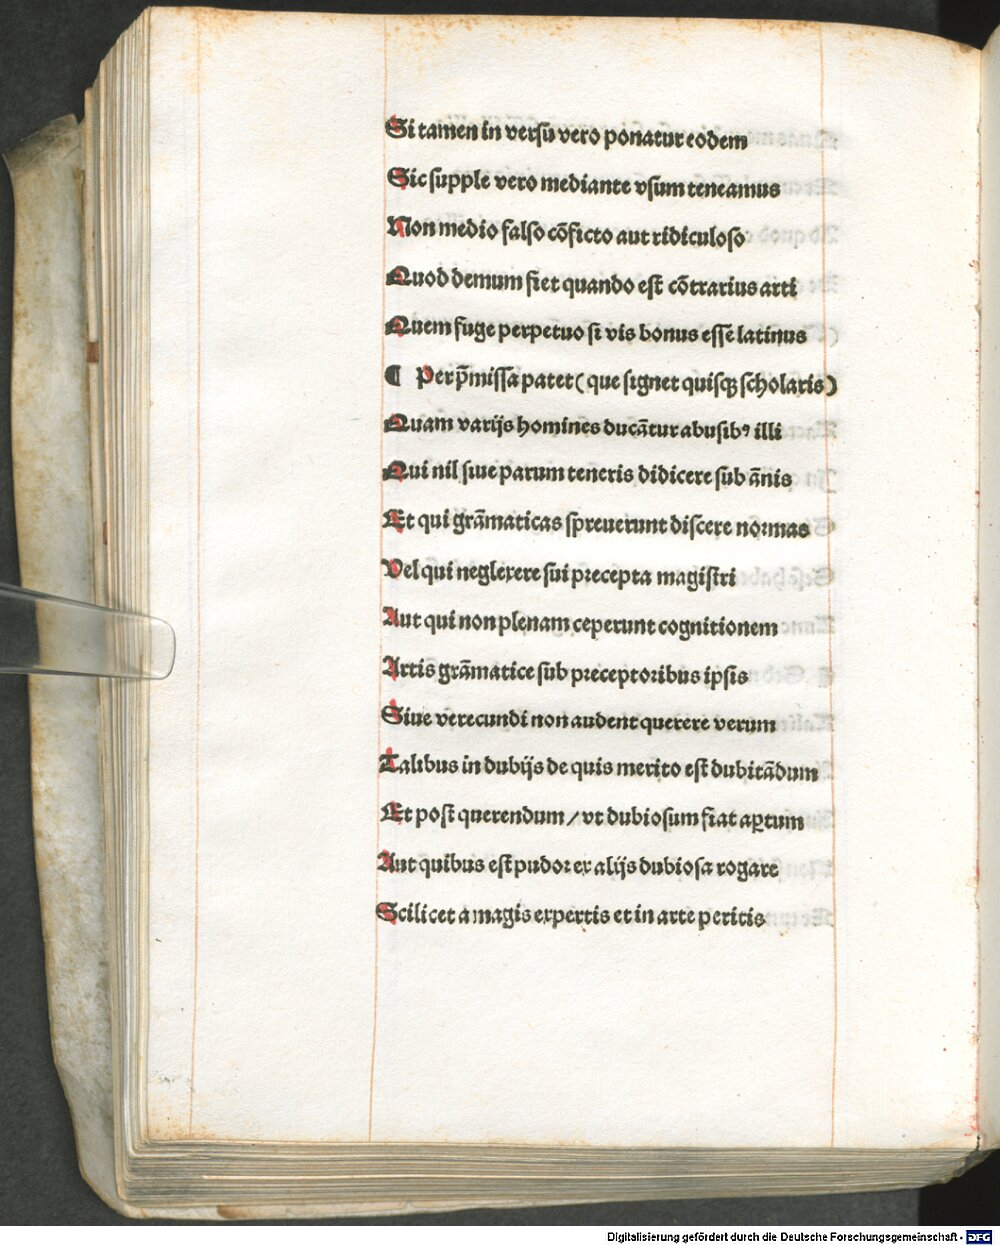 Si tamen in versū vero ponatur eodem
Sic supple vero mediante vsum teneamus
Non medio falso cōficto aut ridiculoso
Quod demum fiet quando est cōtrarius arti
Quem fuge perpetuo si vis bonus esse latinus
¶ Per p̄missa patet (que signet quisqꝫ scholaris)
Quam varijs homines ducātur abusibꝰ illi
Qui nil siue parum teneris didicere sub ānis
Et qui grāmaticas spreuerunt discere normas
Vel qui neglexere sui precepta magistri
Aut qui non plenam ceperunt cognitionem
Artis grāmatice sub preceptoribus ipsis
Siue verecundi non audent querere verum
Talibus in dubijs de quis merito est dubitādum
Et post querendum / vt dubiosum fiat aꝑtum
Aut quibus est pudor ex alijs dubiosa rogare
Scilicet a magis expertis et in arte peritis
Digitalisierung gefördert durch die Deutsche Forschungsgemeinschaft - DFG